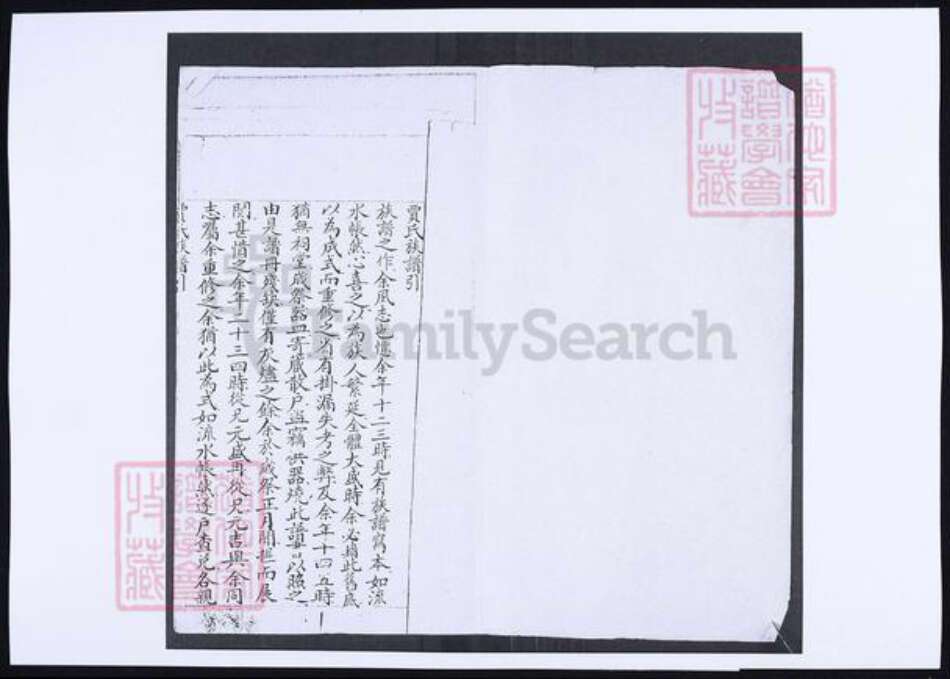 賈氏族譜引
族譜之作余夙志也憶余年十二三時見有族譜寫本如流
水帳然心喜之以為族人繁延全體大感時余必摘此舊底
以為成式而重修之省有掛漏失考之弊及余年十四五時
猶無祠堂歲祭器皿寄藏散戶盜竊供器燒此譜書以照之
由是譜冊殘缺僅有灰燼之餘余於歲祭正月間拒而展
閱甚惜之余年二十三四時從兄元盛再從兄元吉與余同
志屬余重修之余猶以此為式如流水帳然逐戶查兌各親
賈氏族譜引
FamilySearch
譜學會
收藏
收藏